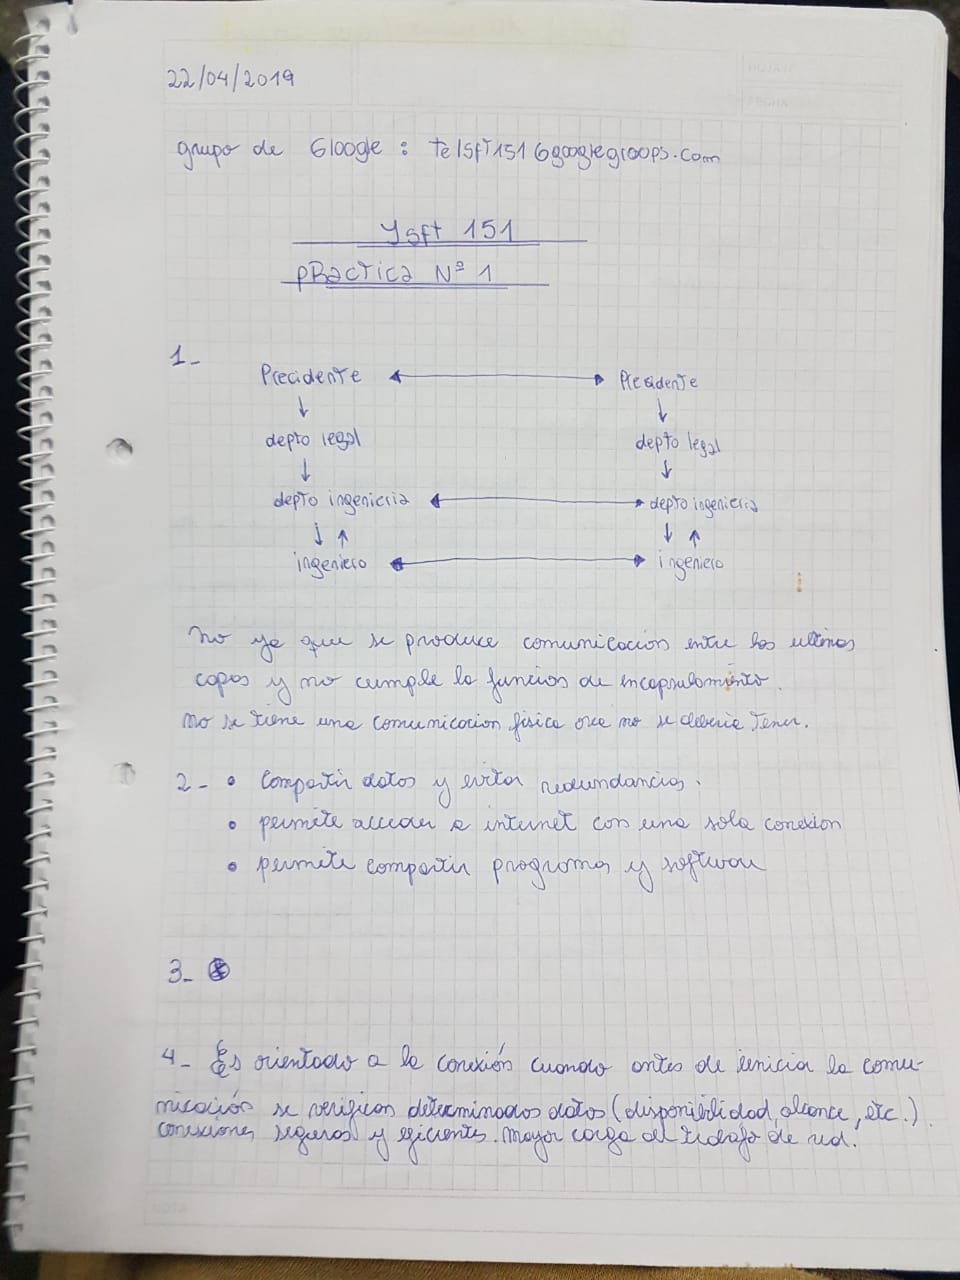 22/04/2019
grupo de Gloogle : telsft151@googlegroops.com
Ysft 151
PRactica Nº 1
1-
Precidente ↔ Presidente
↓ ↓
depto legal depto legal
↓ ↓
depto ingenieria ↔ depto ingenieria
↓ ↑ ↓ ↑
ingeniero ↔ ingeniero
no ya que se produce comunicacion entre las ultimas
capas y no cumple la funcion de encapsulamiento.
no se tiene una comunicacion fisica que no se deberia tener.
2- • Compartir datos y evitar redundancias.
• permite acceder a internet con una sola conexion
• permite compartir programas y software
3-
4- Es orientado a la conexión cuando antes de iniciar la comu-
nicación se verifican determinados datos (disponibilidad, alcance, etc.).
conexiones seguras y eficientes. mayor carga de trabajo de red.